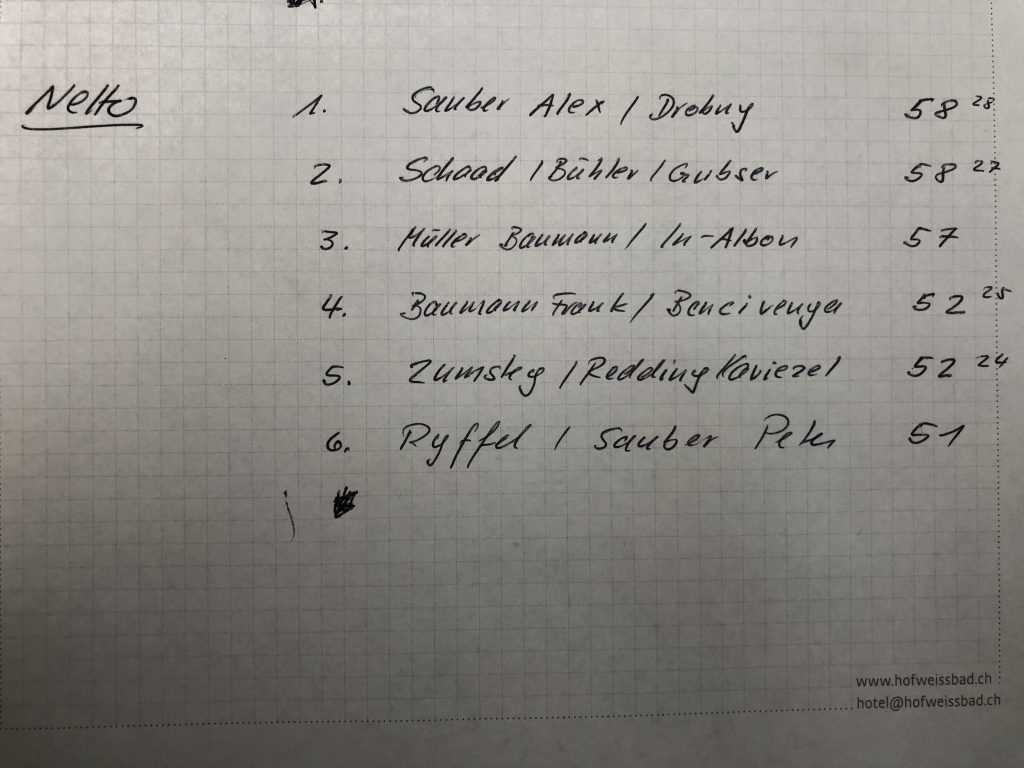 Netto 1. Sauber Alex / Drobny 58 28
2. Schaad / Bühler / Gubser 58 27
3. Müller Baumann / In-Albon 57
4. Baumann Frank / Bencivenga 52 25
5. Zumsteg / Redding Kaviezel 52 24
6. Ryffel / Sauber Peter 51
www.hofweissbad.ch
hotel@hofweissbad.ch